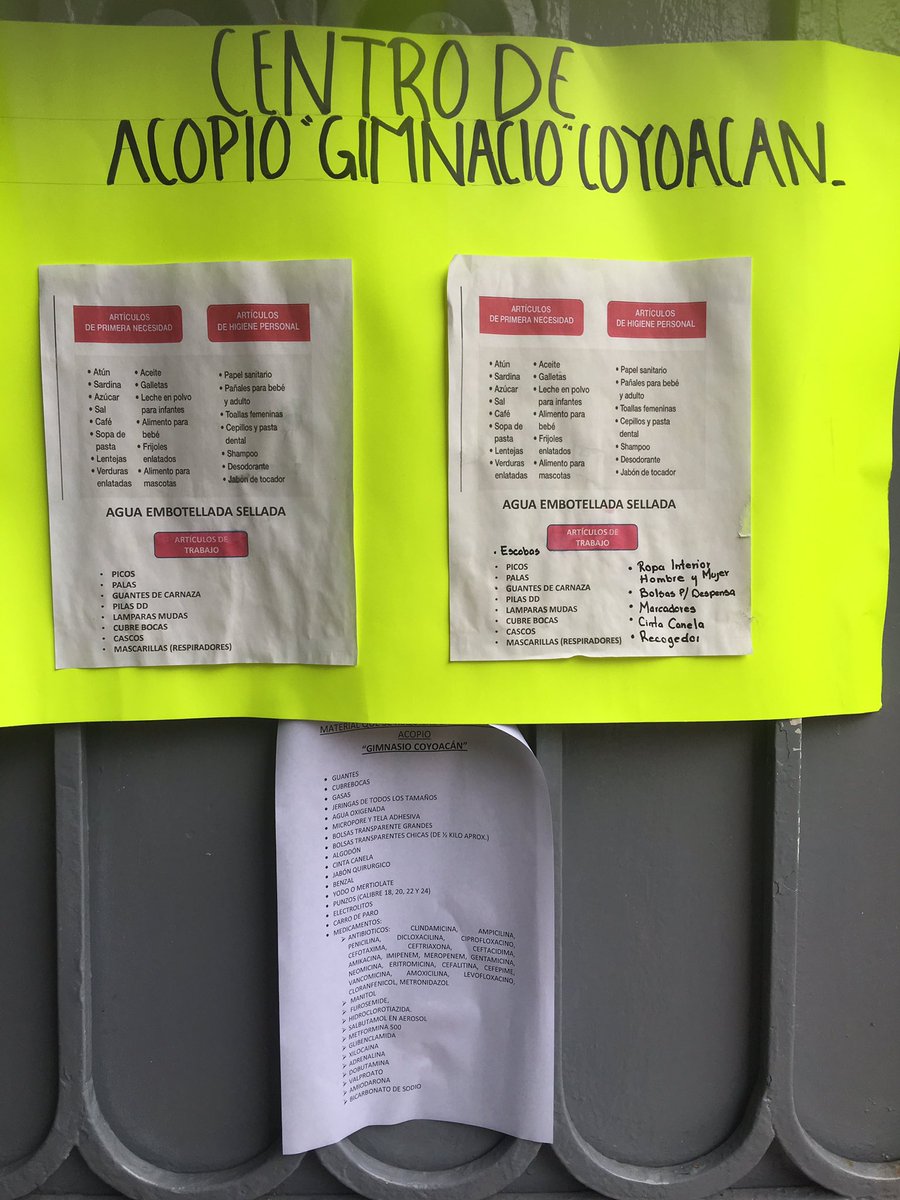 CENTRO DE
ACOPIO "GIMNACIO" COYOACAN
ARTÍCULOS
DE PRIMERA NECESIDAD
• Atún
• Sardina
• Azúcar
• Sal
• Café
• Sopa de
pasta
• Lentejas
• Verduras
enlatadas
• Aceite
• Galletas
• Leche en polvo
para infantes
• Alimento para
bebé
• Frijoles
enlatados
• Alimento para
mascotas
ARTÍCULOS
DE HIGIENE PERSONAL
• Papel sanitario
• Pañales para bebé
y adulto
• Toallas femeninas
• Cepillos y pasta
dental
• Shampoo
• Desodorante
• Jabón de tocador
AGUA EMBOTELLADA SELLADA
ARTÍCULOS DE
TRABAJO
• PICOS
• PALAS
• GUANTES DE CARNAZA
• PILAS DD
• LAMPARAS MUDAS
• CUBRE BOCAS
• CASCOS
• MASCARILLAS (RESPIRADORES)
ARTÍCULOS
DE PRIMERA NECESIDAD
• Atún
• Sardina
• Azúcar
• Sal
• Café
• Sopa de
pasta
• Lentejas
• Verduras
enlatadas
• Aceite
• Galletas
• Leche en polvo
para infantes
• Alimento para
bebé
• Frijoles
enlatados
• Alimento para
mascotas
ARTÍCULOS
DE HIGIENE PERSONAL
• Papel sanitario
• Pañales para bebé
y adulto
• Toallas femeninas
• Cepillos y pasta
dental
• Shampoo
• Desodorante
• Jabón de tocador
AGUA EMBOTELLADA SELLADA
ARTÍCULOS DE
TRABAJO
• Escobas
• PICOS
• PALAS
• GUANTES DE CARNAZA
• PILAS DD
• LAMPARAS MUDAS
• CUBRE BOCAS
• CASCOS
• MASCARILLAS (RESPIRADORES)
• Ropa Interior
Hombre y Mujer
• Bolsas P/ Despensa
• Marcadores
• Cinta Canela
• Recogedor
MATERIAL QUE
ACOPIO
"GIMNASIO COYOACÁN"
• GUANTES
• CUBREBOCAS
• GASAS
• JERINGAS DE TODOS LOS TAMAÑOS
• AGUA OXIGENADA
• MICROPORE Y TELA ADHESIVA
• BOLSAS TRANSPARENTE GRANDES
• BOLSAS TRANSPARENTES CHICAS (DE ½ KILO APROX.)
• ALGODÓN
• CINTA CANELA
• JABÓN QUIRURGICO
• BENZAL
• YODO O MERTIOLATE
• PUNZOS (CALIBRE 18, 20, 22 Y 24)
• ELECTROLITOS
• CARRO DE PARO
• MEDICAMENTOS:
➢ ANTIBIOTICOS: CLINDAMICINA, AMPICILINA,
PENICILINA, DICLOXACILINA, CIPROFLOXACINO,
CEFOTAXIMA, CEFTRIAXONA, CEFTACIDIMA,
AMIKACINA, IMIPENEM, MEROPENEM, GENTAMICINA,
NEOMICINA, ERITROMICINA, CEFALITINA, CEFEPIME,
VANCOMICINA, AMOXICILINA, LEVOFLOXACINO,
CLORANFENICOL, METRONIDAZOL
➢ MANITOL
➢ FUROSEMIDE,
➢ HIDROCLOROTIAZIDA.
➢ SALBUTAMOL EN AEROSOL
➢ METFORMINA 500
➢ GLIBENCLAMIDA
➢ XILOCAINA
➢ ADRENALINA
➢ DOBUTAMINA
➢ VALPROATO
➢ AMIODARONA
➢ BICARBONATO DE SODIO